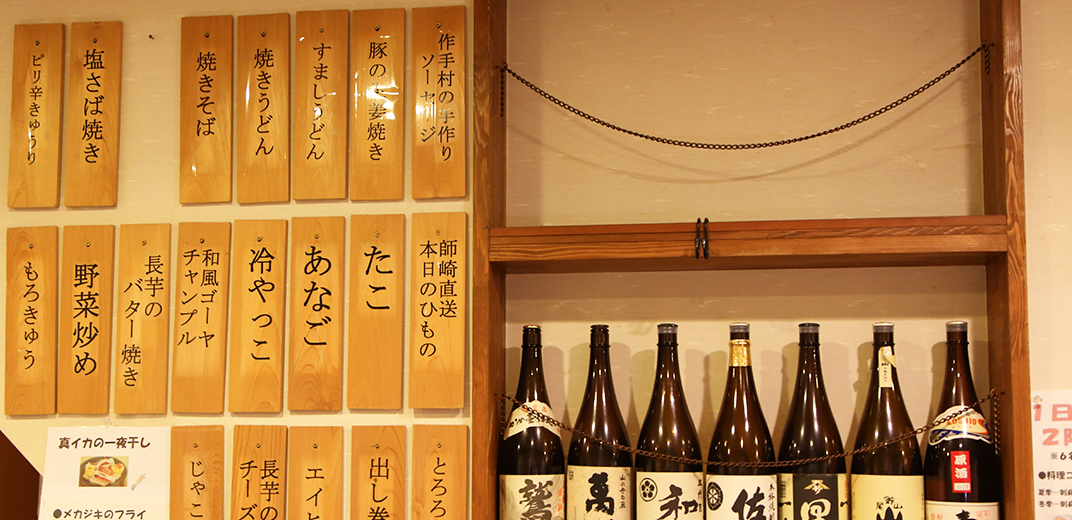 作手村の手作り
ソーセージ
豚の生姜焼き
すましうどん
焼きうどん
焼きそば
塩さば焼き
ピリ辛きゅうり
師崎直送
本日のひもの
たこ
あなご
冷やっこ
和風ゴーヤ
チャンプル
長芋の
バター焼き
野菜炒め
もろきゅう
とろろ
出し巻
エイヒ
長芋の
チーズ
じゃこ
真イカの一夜干し
●メカジキのフライ
鷲
萬
和
佐
原酒
1日
2階
※6名
●料理コ
夏季…刺
冬季…刺